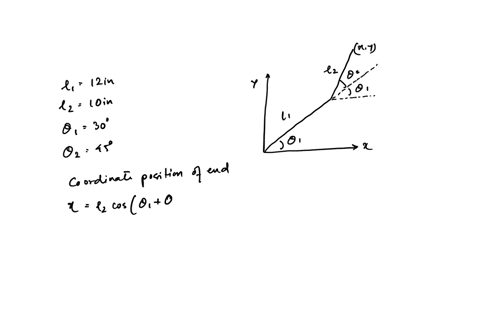 l₁ = 12in
l₂ = 10in
θ₁ = 30°
θ₂ = 45°
Coordinate position of end
x = l₂ cos(θ₁ + θ
y
(x,y)
l₂
θ²
θ₁
l₁
θ₁
x